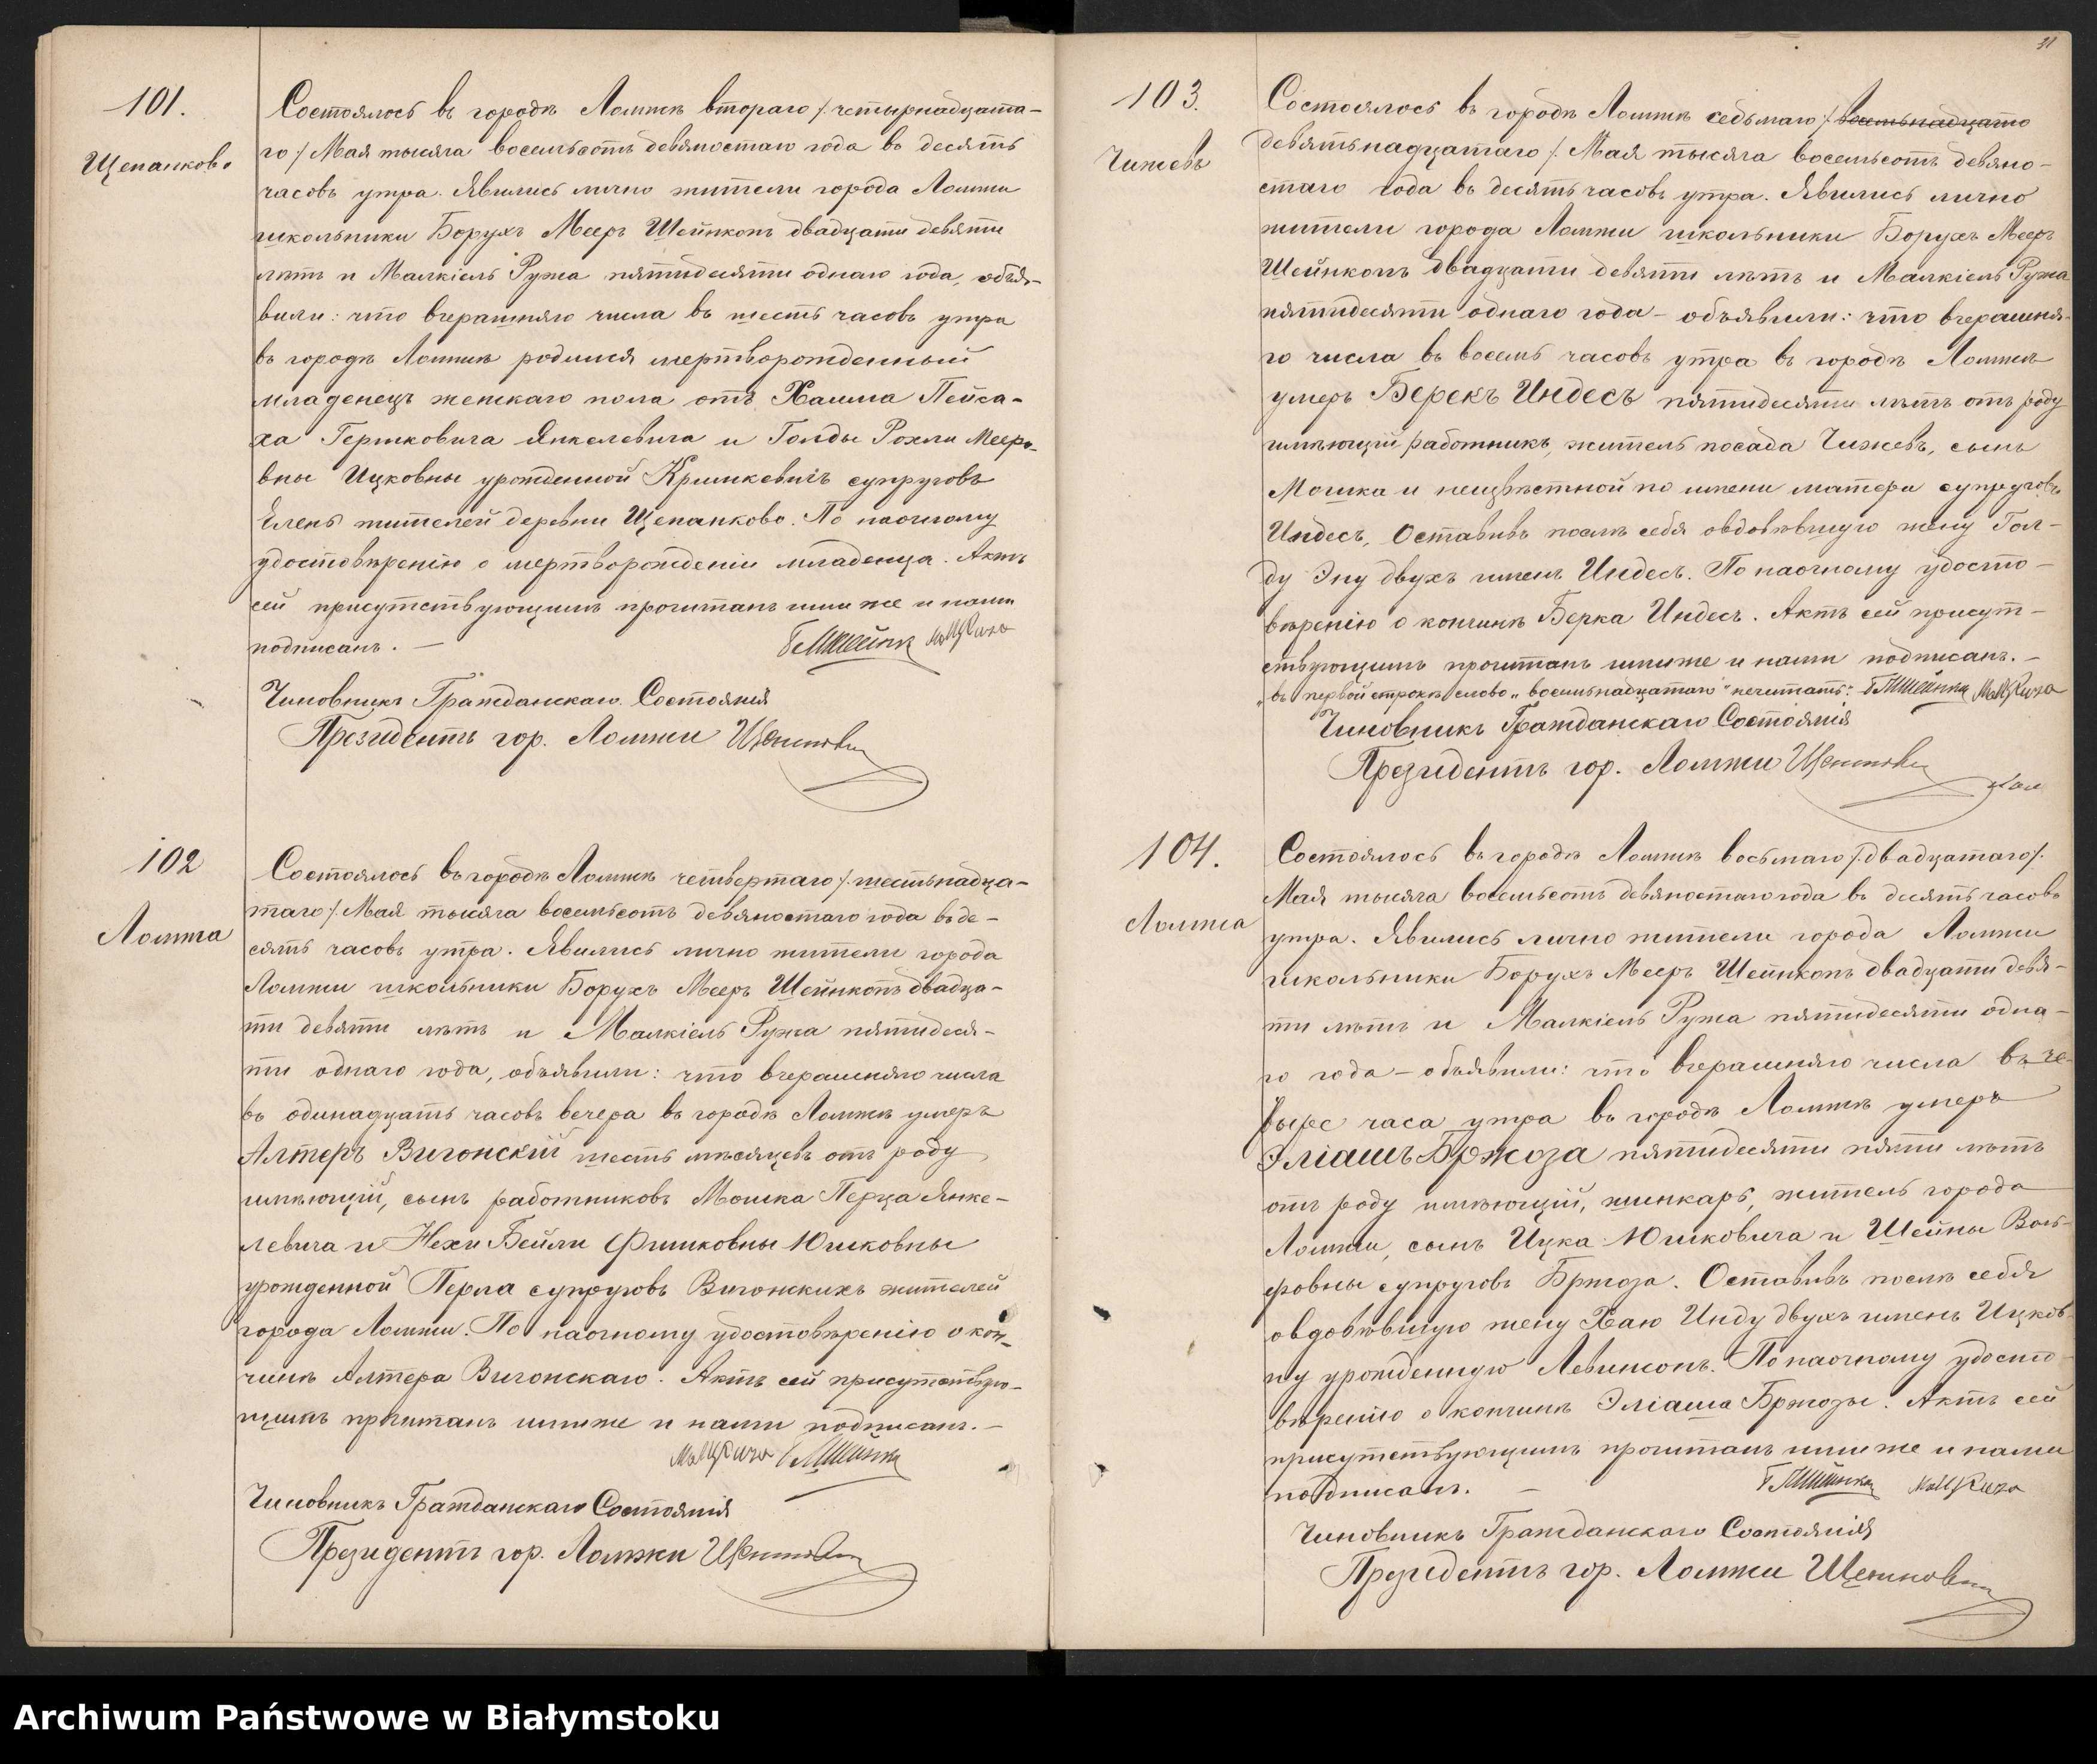 101.
Щепанково
Состоялось въ городѣ Ломжѣ втораго /: четырнадцата-
го :/ Мая тысяча восемьсотъ девяностаго года въ десять
часовъ утра. Явились лично жители города Ломжи
школьники Борухъ Мееръ Шейнкопъ двадцати девяти
лѣтъ и Малкіель Ружа пятидесяти одного года, объя-
вили: что вчерашняго числа въ шесть часовъ утра
въ городѣ Ломжѣ родился мертворожденный
младенецъ женскаго пола отъ Хаима Пейса-
ха Гершковича Янкелевича и Голды Рохли Меєро-
вны Ицковны урожденной Кршикевичъ супруговъ
жителей деревни Щепанково. По наочному
удостовѣренію о мертворожденіи младенца. Актъ
сей присутствующимъ прочитанъ ими же и нами
подписанъ. —
Чиновникъ Гражданскаго Состоянія
Президентъ гор. Ломжи
102
Ломжа
Состоялось въ городѣ Ломжѣ четвертаго /: шестьнадца-
таго :/ Мая тысяча восемьсотъ девяностаго года въ де-
сять часовъ утра. Явились лично жители города
Ломжи школьники Борухъ Мееръ Шейнкопъ двадца-
ти девяти лѣтъ и Малкіель Ружа пятидеся-
ти одного года, объявили: что вчерашняго числа
въ одинадцать часовъ вечера въ городѣ Ломжѣ умеръ
Алтеръ Вигонскій шесть мѣсяцевъ отъ роду
имѣющій, сынъ работниковъ Мошка Перца Янке-
левича и Нехи Бейли Фишковны Юшковны
урожденной Перла супруговъ Вигонскихъ жителей
города Ломжи. По наочному удостовѣренію о кон-
чинѣ Алтера Вигонскаго. Актъ сей присутствую-
щимъ прочитанъ ими же и нами подписанъ. —
Чиновникъ Гражданскаго Состоянія
Президентъ гор. Ломжи
31
103.
Чижевъ
Состоялось въ городѣ Ломжѣ седьмаго /: восемьнадцато
девятьнадцатаго :/ Мая тысяча восемьсотъ девяно-
стаго года въ десять часовъ утра. Явились лично
жители города Ломжи школьники Борухъ Мееръ
Шейнкопъ двадцати девяти лѣтъ и Малкіель Ружа
пятидесяти одного года – объявили: что вчерашня-
го числа въ восемь часовъ утра въ городѣ Ломжѣ
умеръ Берекъ Индесъ пятидесяти лѣтъ отъ роду
имѣющій работникъ, житель посада Чижевъ, сынъ
Мошка и неизвѣстной по имени матери супруговъ
Индесъ, Оставивъ послѣ себя овдовѣвшую жену Гол-
ду Эну двухъ именъ Индесъ. По наочному удосто-
вѣренію о кончинѣ Берка Индесъ. Актъ сей присут-
ствующимъ прочитанъ ими же и нами подписанъ. —
въ первой строкѣ слово „восемьнадцатаго" нечитать:
Чиновникъ Гражданскаго Состоянія
Президентъ гор. Ломжи
104.
Ломжа
Состоялось въ городѣ Ломжѣ восьмаго /: двадцатаго :/
Мая тысяча восемьсотъ девяностаго года въ десять часовъ
утра. Явились лично жители города Ломжи
школьники Борухъ Мееръ Шейнкопъ двадцати девя-
ти лѣтъ и Малкіель Ружа пятидесяти одна-
го года – объявили: что вчерашняго числа въ че-
тыре часа утра въ городѣ Ломжѣ умеръ
Эліашъ Бржоза пятидесяти пяти лѣтъ
отъ роду имѣющій, шинкарь, житель города
Ломжи, сынъ Ицка Юшковича и Шейны Воль-
фовны супруговъ Бржоза. Оставивъ послѣ себя
овдовѣвшую жену Хаю Инду двухъ именъ Ицков-
ну урожденную Левинсонъ. По наочному удосто-
вѣренію о кончинѣ Эліаша Бржозы. Актъ сей
присутствующимъ прочитанъ ими же и нами
подписанъ. —
Чиновникъ Гражданскаго Состоянія
Президентъ гор. Ломжи
Archiwum Państwowe w Białymstoku